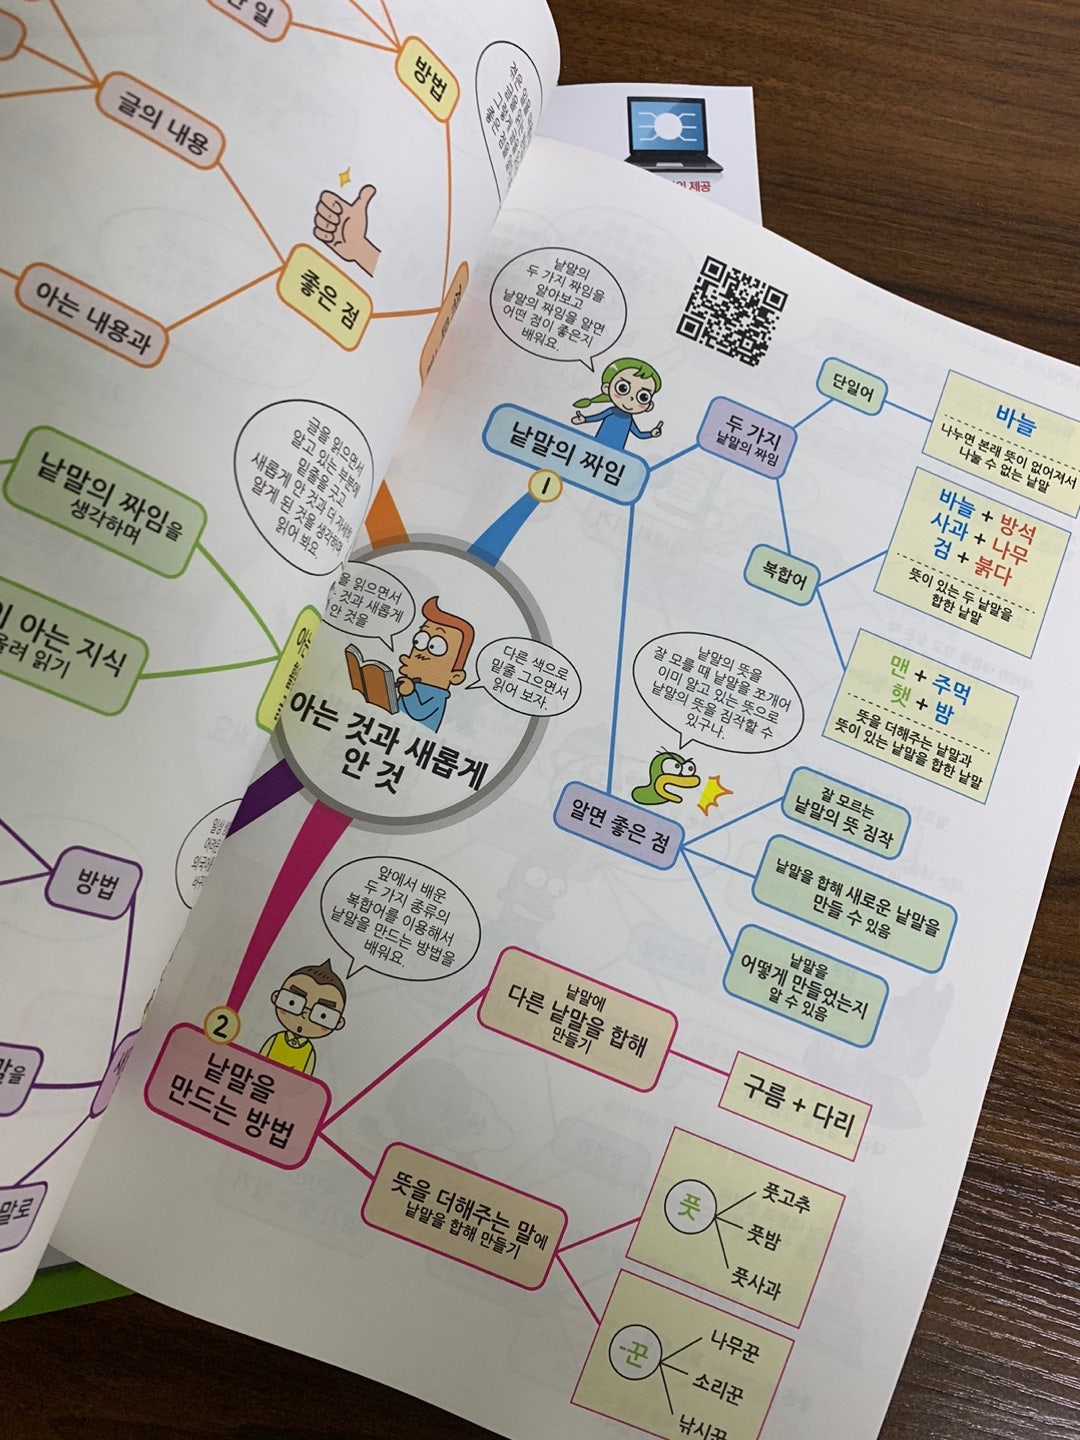 방법
글의 내용
좋은 점
아는 내용과
글을 읽으면서
알고 있는 부분에
밑줄을 긋고
새롭게 안 것과 더 자세히
알게 된 것을 생각하며
읽어 봐요.
낱말의 짜임을
생각하며
아는 지식
읽기
방법
낱말의
두 가지 짜임을
알아보고
낱말의 짜임을 알면
어떤 점이 좋은지
배워요.
낱말의 짜임
1
두 가지
낱말의 짜임
단일어
바늘
나누면 본래 뜻이 없어져서
나눌 수 없는 낱말
복합어
바늘 + 방석
사과 + 나무
검 + 붉다
뜻이 있는 두 낱말을
합한 낱말
맨 + 주먹
햇 + 밤
뜻을 더해주는 낱말과
뜻이 있는 낱말을 합한 낱말
낱말의 뜻을
잘 모를 때 낱말을 쪼개어
이미 알고 있는 뜻으로
낱말의 뜻을 짐작할 수
있구나.
알면 좋은 점
잘 모르는
낱말의 뜻 짐작
낱말을 합해 새로운 낱말을
만들 수 있음
낱말을
어떻게 만들었는지
알 수 있음
읽으면서
것과 새롭게
안 것을
다른 색으로
밑줄 그으면서
읽어 보자.
아는 것과 새롭게
안 것
앞에서 배운
두 가지 종류의
복합어를 이용해서
낱말을 만드는 방법을
배워요.
2
낱말을
만드는 방법
낱말에
다른 낱말을 합해
만들기
구름 + 다리
뜻을 더해주는 말에
낱말을 합해 만들기
풋
풋고추
풋밤
풋사과
-꾼
나무꾼
소리꾼
낚시꾼
제공